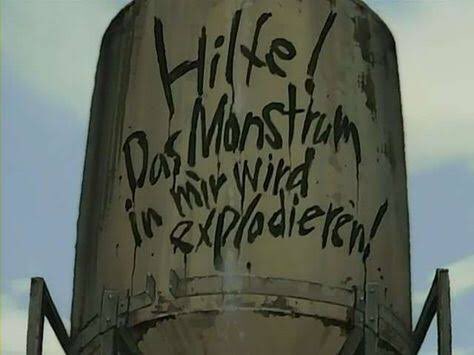 Hilfe!
Das Monstrum
in mir wird
explodieren!